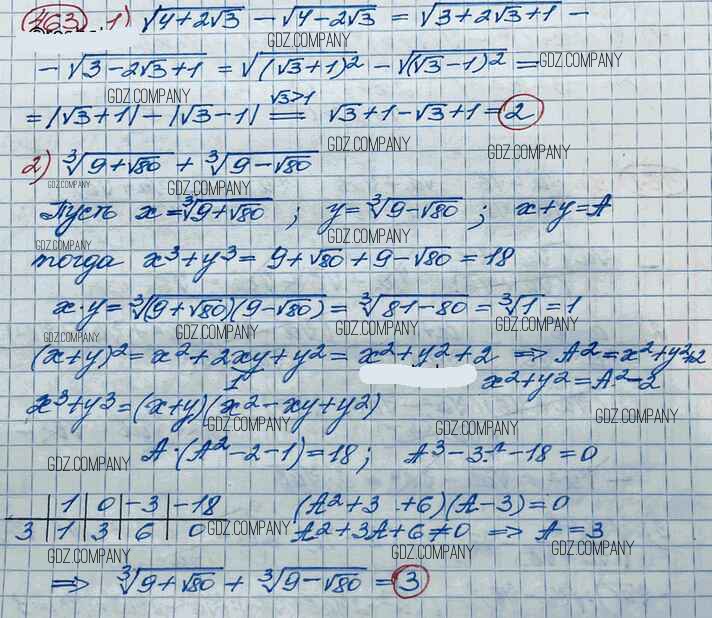 463 1) √(4+2√3) − √(4−2√3) = √(3+2√3+1) −
GDZ.COMPANY
− √(3−2√3+1) = √((√3+1)²) − √((√3−1)²) =
GDZ.COMPANY
GDZ.COMPANY
= |√3+1| − |√3−1| =^(√3>1) √3+1−√3+1 = 2
GDZ.COMPANY
GDZ.COMPANY
2) ∛(9+√80) + ∛(9−√80)
GDZ.COMPANY
GDZ.COMPANY
Пусть x = ∛(9+√80) ; y = ∛(9−√80) ; x+y=A
GDZ.COMPANY
GDZ.COMPANY
тогда x³+y³ = 9+√80+9−√80 = 18
x·y = ∛((9+√80)(9−√80)) = ∛(81−80) = ∛1 = 1
GDZ.COMPANY GDZ.COMPANY GDZ.COMPANY GDZ.COMPANY
(x+y)² = x²+2xy+y² = x²+y²+2 ⇒ A²=x²+y²+2
1
x²+y²=A²−2
x³+y³=(x+y)(x²−xy+y²)
GDZ.COMPANY GDZ.COMPANY GDZ.COMPANY
A·(A²−2−1)=18; A³−3A−18=0
GDZ.COMPANY
1 0 −3 −18 (A²+3 +6)(A−3)=0
3 1 3 6 0 A²+3A+6≠0 ⇒ A=3
GDZ.COMPANY
GDZ.COMPANY GDZ.COMPANY GDZ.COMPANY
⇒ ∛(9+√80) + ∛(9−√80) = 3